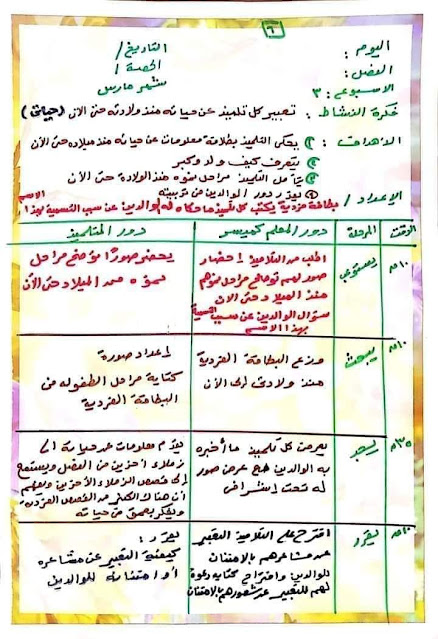 ٦
اليوم :
التاريخ /
الفصل :
الحصة /
الاسبوع : ٣
شهر مارس
فكرة النشاط : تعبير كل تلميذ عن حياته منذ ولادته حتى الآن (حياتى)
الأهداف : يحكى التلميذ بطاقة معلومات عن حياته منذ ميلاده حتى الآن
يتعرف كيف ولد وكبر
يتأمل التلميذ مراحل نموه منذ الولادة حتى الآن
يقدر دور الوالدين فى تربيته
الإعداد / بطاقة فردية يكتب كل تلميذ ما حكاه له الوالدين عن سبب التسمية بهذا الاسم
الوقت
المرحلة
دور المعلم كميسر
دور المتلميذ
١٠ ق
يستوعب
اطلب من التلاميذ احضار
صور لهم توضح مراحل نموهم
منذ الميلاد حتى الآن
سؤال الوالدين عن سبب التسمية
بهذا الاسم
يحضر صورًا توضح مراحل
نموه من الميلاد حتى الآن
١٠ ق
يبحث
وزع البطاقة الفردية
منذ ولادتى إلى الآن
إعداد صورة
كتابة مراحل الطفوله من
البطاقة الفردية
٣٥ ق
يعرض كل تلميذ ما أخبره
به الوالدين مع عرض صور
له تحت إشراف
يقدم معلومات عن حياته الى
زملاء آخرين من الفصل ويستمع
إلى قصص الزملاء الآخرين ويفهم
أن هناك الكثير من القصص الفردية
ويفكر بعمق من حياته
١٠ ق
يقرر
اقترح على التلاميذ التعبير
عن مشاعرهم بالامتنان
للوالدين واقتراح كتابه دعوة
لهم للتعبير عن شعورهم بالامتنان
يقرر :
كيفية التعبير عن مشاعره
أو امتنانه للوالدين